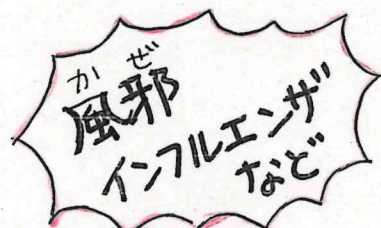 かぜ
風邪
インフルエンザ
など